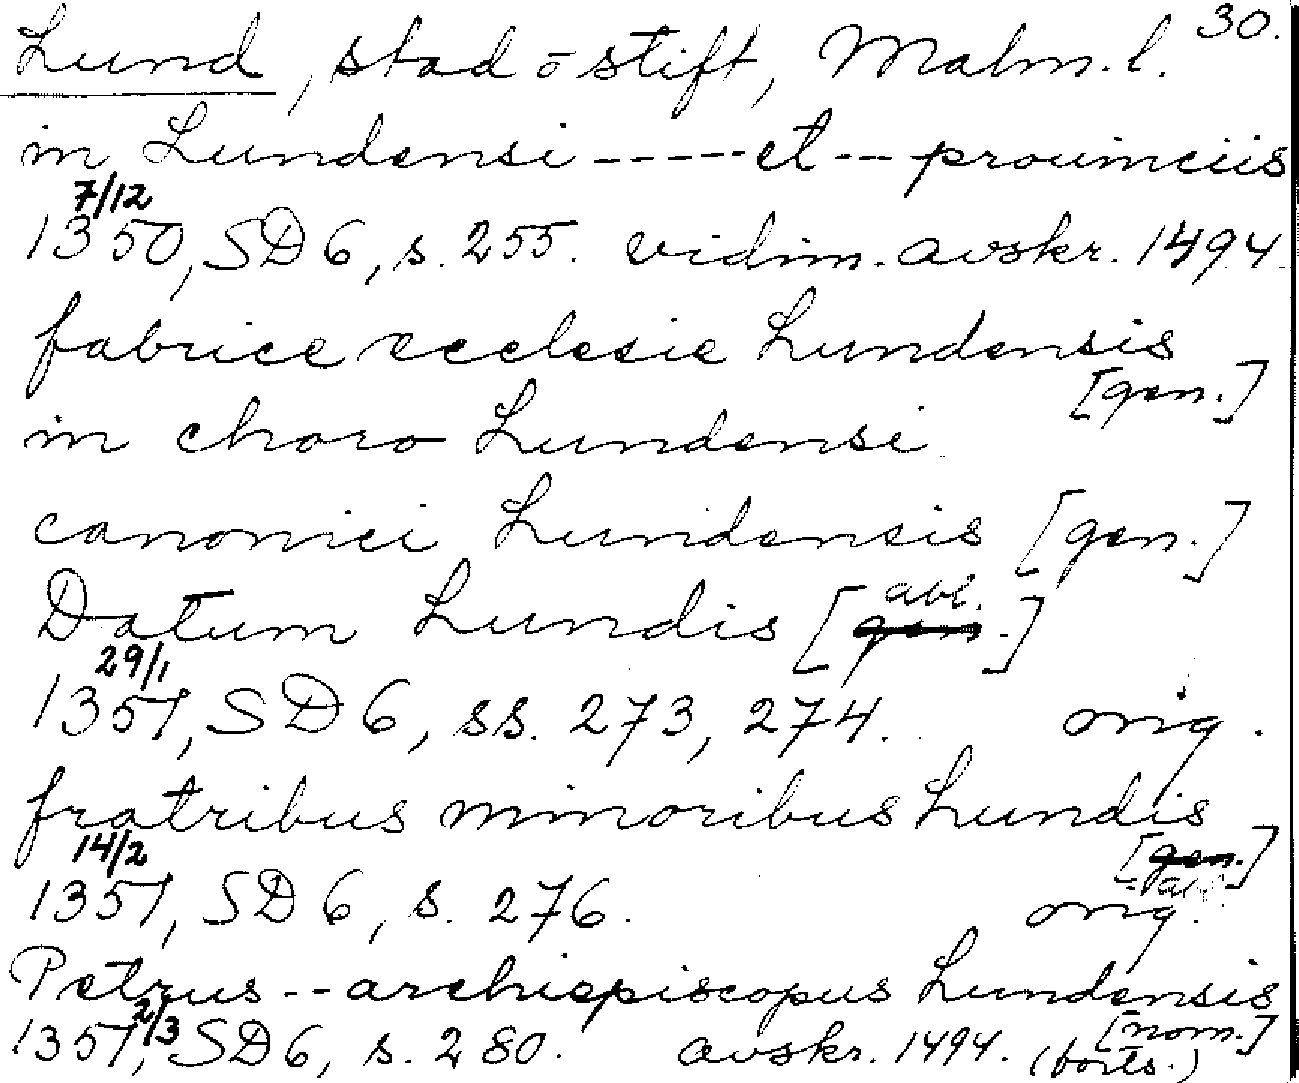 30.
Lund, stad o stift, Malm. l.
in Lundensi ----- et -- prouinciis
7/12
1350, SD 6, s. 255. vidim. avskr. 1494
fabrice ecclesie Lundensis
[gen.]
in choro Lundensi
canonici Lundensis [gen.]
abl.
Datum Lundis [gen.]
29/1
1351, SD 6, ss. 273, 274. orig.
fratribus minoribus Lundis
14/2 [gen.]
abl.
1351, SD 6, s. 276. orig.
Petrus -- archiepiscopus Lundensis
2/3 [nom.]
1351, SD 6, s. 280. avskr. 1494. (forts.)